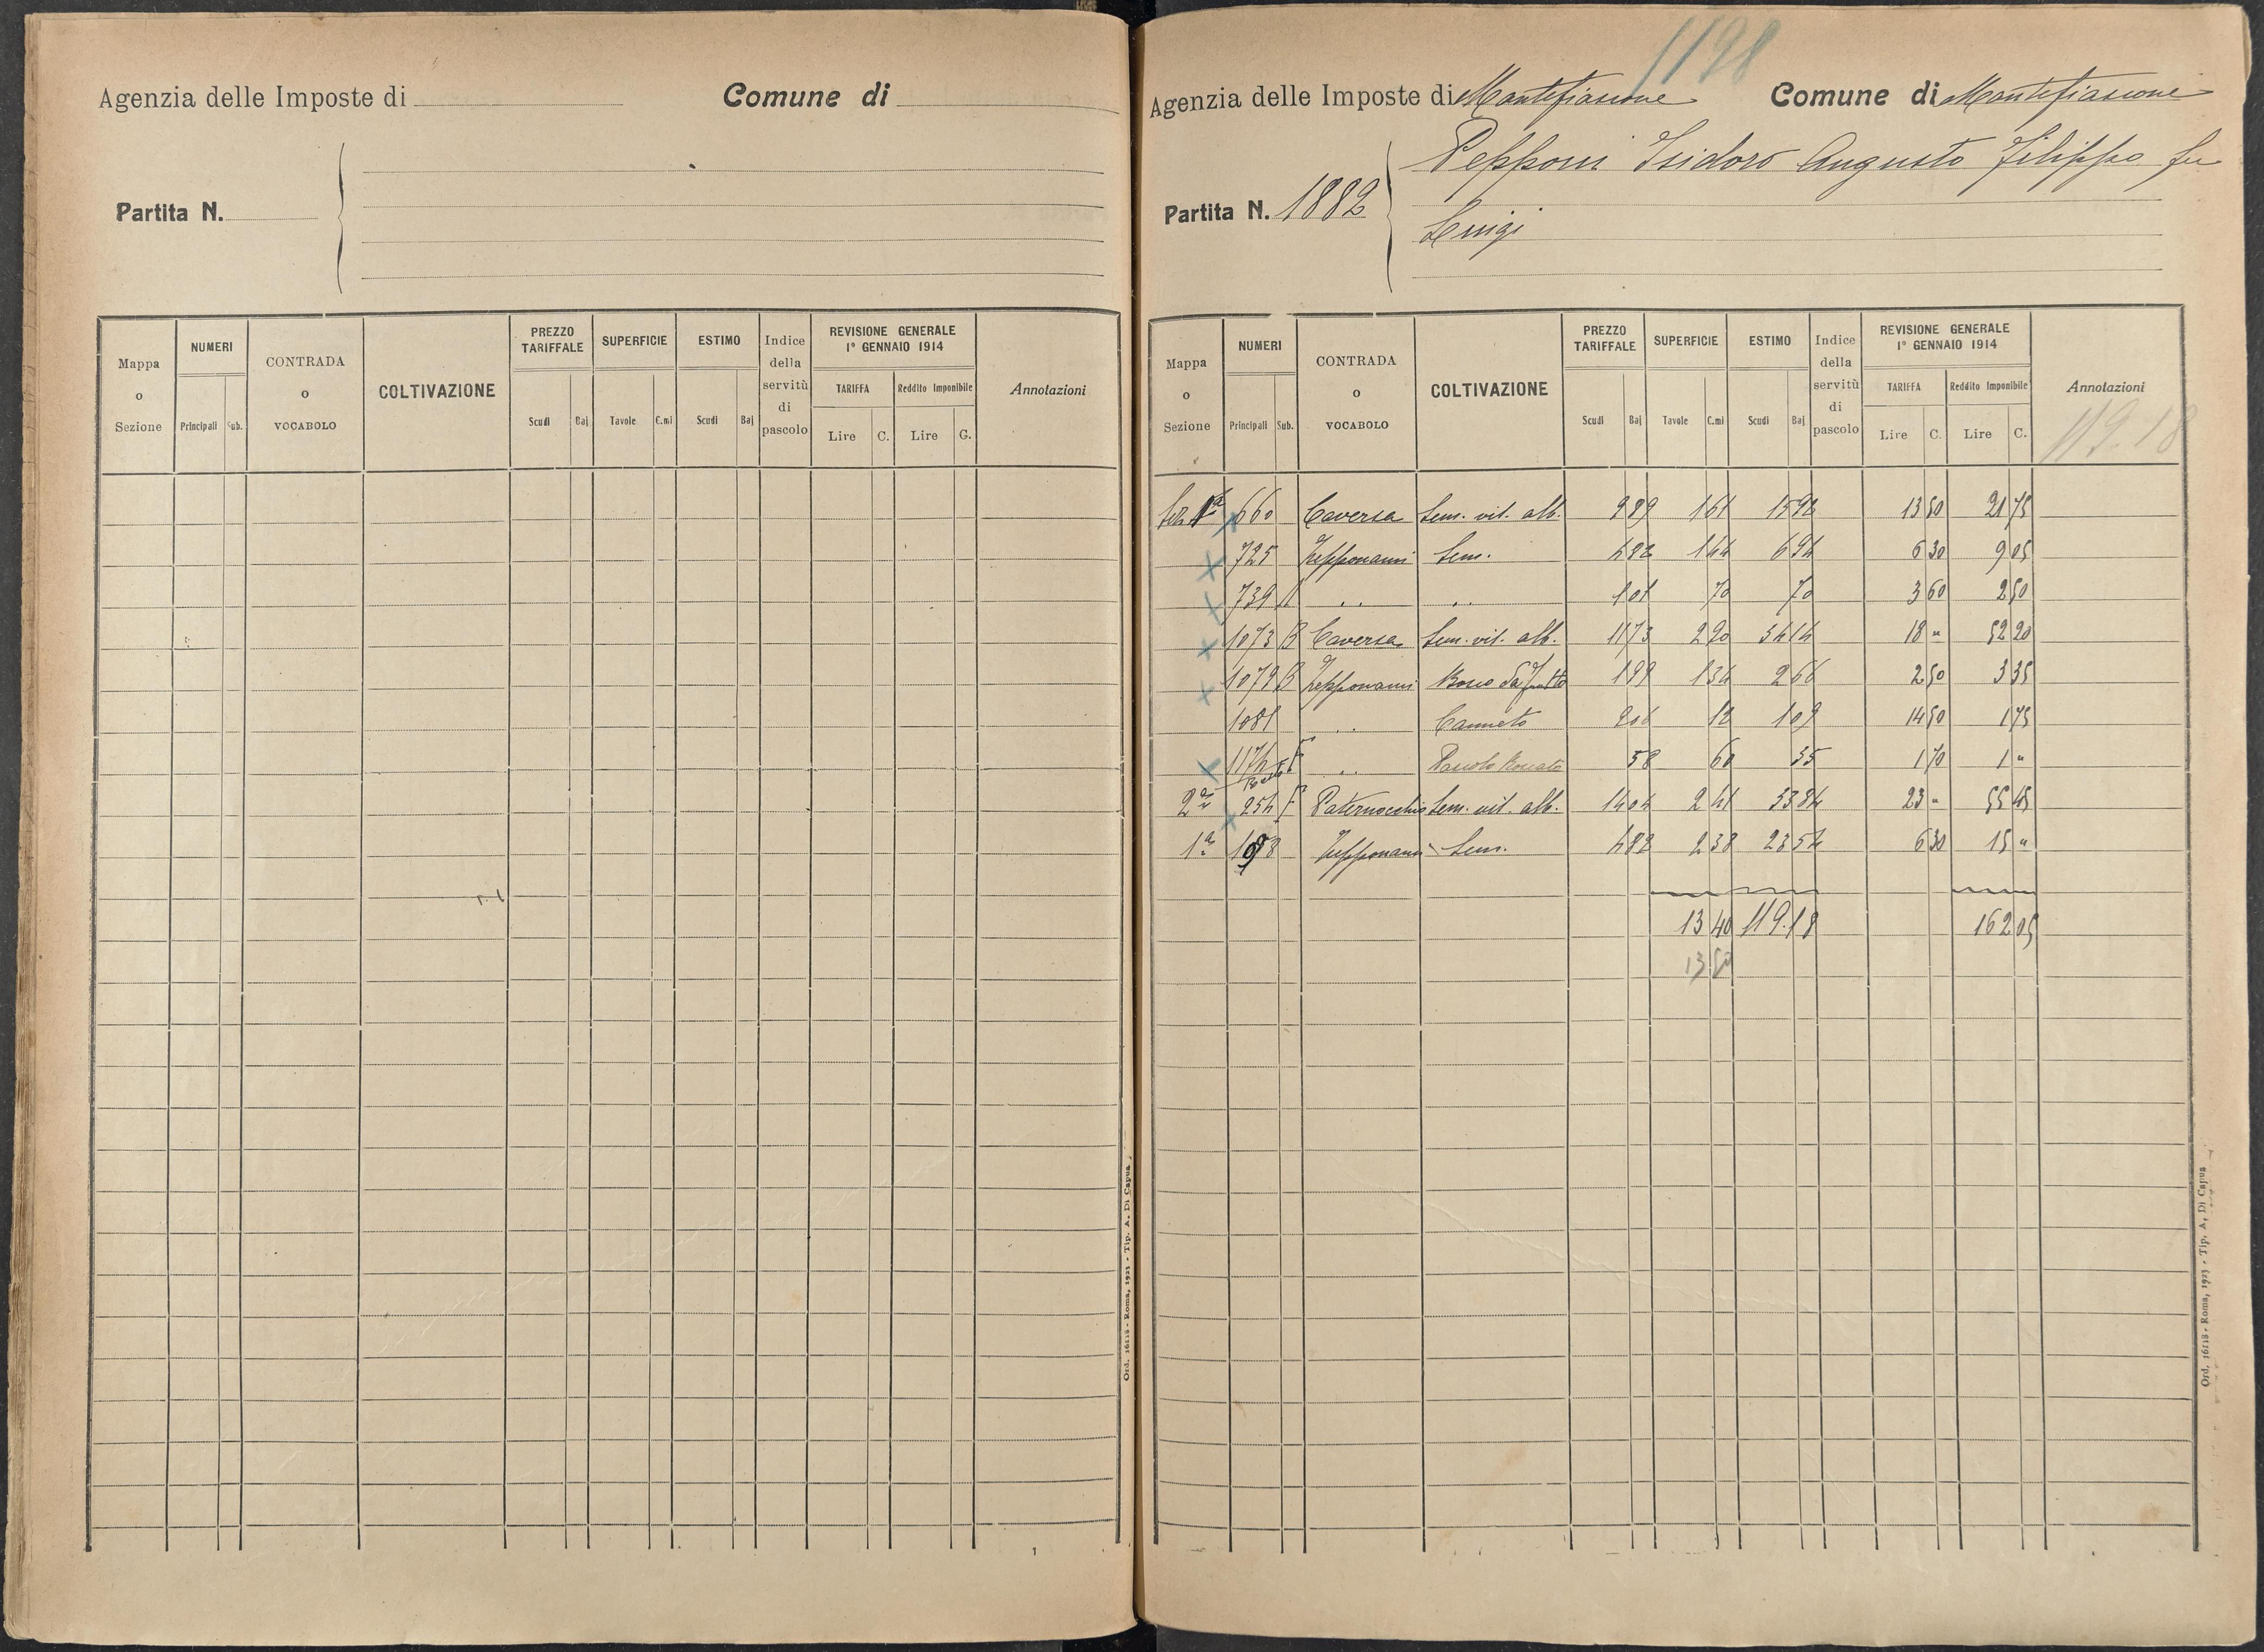 Agenzia delle Imposte di Comune di
Partita N.
Mappa o Sezione NUMERI Principali Sub. CONTRADA o VOCABOLO COLTIVAZIONE PREZZO TARIFFALE Scudi Baj SUPERFICIE Tavole C.mi ESTIMO Scudi Baj Indice della servitù di pascolo REVISIONE GENERALE 1° GENNAIO 1914 TARIFFA Lire C. Reddito Imponibile Lire C. Annotazioni
Ord. 16118 - Roma, 1923 - Tip. A. Di Capua
1198
Agenzia delle Imposte di Montefiascone Comune di Montefiascone
Pepponi Isidoro Augusto Filippo fu
Partita N. 1882
Luigi
Mappa o Sezione NUMERI Principali Sub. CONTRADA o VOCABOLO COLTIVAZIONE PREZZO TARIFFALE Scudi Baj SUPERFICIE Tavole C.mi ESTIMO Scudi Baj Indice della servitù di pascolo REVISIONE GENERALE 1° GENNAIO 1914 TARIFFA Lire C. Reddito Imponibile Lire C. Annotazioni
119.18
1ª 660 Caversa Sem. vit. alb. 989 161 1592 13 50 21 75
725 Zepponami Sem. 482 144 694 6 30 9 05
739 .. .. 101 70 70 3 60 2 50
1073 B Caversa Sem. vit. alb. 1173 290 3414 18 " 52 20
1079 B Zepponami Bosco da frutto 199 134 266 2 50 3 35
1081 .. Canneto 906 12 109 14 50 1 75
.. Pascolo 58 60 35 1 70 1 "
2ª 254 F Paternocchio Sem. vit. alb. 1404 241 3384 23 " 55 45
1ª Zepponami Sem. 482 238 2354 6 30 15 "
13 40 119.18 162 05
13 50
Ord. 16118 - Roma, 1923 - Tip. A. Di Capua